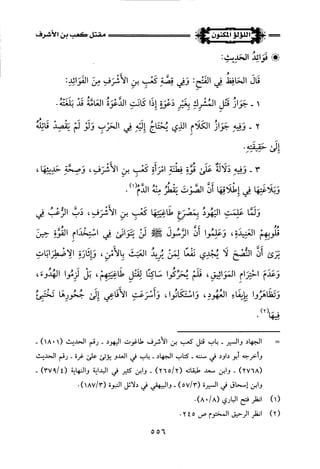 اللؤلؤ المكنون
مقتل كعب بن الأشرف
فَوَائِدُ الحَدِيثِ:
قَالَ الحَافِظُ فِي الفَتْحِ: وَفِي قِصَّةِ كَعْبِ بنِ الأَشْرَفِ مِنَ الفَوَائِدِ:
١ - جَوَازُ قَتْلِ المُشْرِكِ بِغَيْرِ دَعْوَةٍ إِذَا كَانَتِ الدَّعْوَةُ العَامَّةُ قَدْ بَلَغَتْهُ.
٢ - وَفِيهِ جَوَازُ الكَلَامِ الذِي يُحْتَاجُ إِلَيْهِ فِي الحَرْبِ وَلَوْ لَمْ يَقْصِدْ قَائِلُهُ
إِلَى حَقِيقَتِهِ.
٣ - وَفِيهِ دَلَالَةٌ عَلَى قُوَّةِ فِطْنَةِ امْرَأَةِ كَعْبِ بنِ الأَشْرَفِ، وَصِحَّةِ حَدِيثِهَا،
وَبَلَاغَتِهَا فِي إِطْلَاقِهَا أَنَّ الصَّوْتَ يَقْطُرُ مِنْهُ الدَّمُ(١).
وَلَمَّا عَلِمَتِ اليَهُودُ بِمَصْرَعِ طَاغِيَتِهَا كَعْبِ بنِ الأَشْرَفِ، دَبَّ الرُّعْبُ فِي
قُلُوبِهِمُ العَنِيدَةِ، وَعَلِمُوا أَنَّ الرَّسُولَ ﷺ لَنْ يَتَوَانَى فِي اسْتِخْدَامِ القُوَّةِ حِينَ
يَرَى أَنَّ النُّصْحَ لَا يُجْدِي نَفْعًا لِمَنْ يُرِيدُ العَبَثَ بِالأَمْنِ، وَإِثَارَةَ الِاضْطِرَابَاتِ
وَعَدَمَ احْتِرَامِ المَوَاثِيقِ، فَلَمْ يُحَرِّكُوا سَاكِنًا لِقَتْلِ طَاغِيَتِهِمْ، بَلْ لَزِمُوا الهُدُوءَ،
وَتَظَاهَرُوا بِإِيفَاءِ العُهُودِ، وَاسْتَكَانُوا، وَأَسْرَعَتِ الأَفَاعِي إِلَى جُحُورِهَا تَخْتَبِئُ
فِيهَا(٢).
= الجهاد والسير - باب قتل كعب بن الأشرف طاغوت اليهود - رقم الحديث (١٨٠١) -
وأخرجه أبو داود في سننه - كتاب الجهاد - باب في العدو يؤتى على غرة - رقم الحديث
(٢٧٦٨) - وابن سعد طبقاته (٢٦٥/٢) - وابن كثير في البداية والنهاية (٣٧٩/٤) -
وابن إسحاق في السيرة (٥٧/٣) - والبيهقي في دلائل النبوة (١٨٧/٣).
(١) انظر فتح الباري (٨٠/٨).
(٢) انظر الرحيق المختوم ص ٢٤٥.
٥٥٦